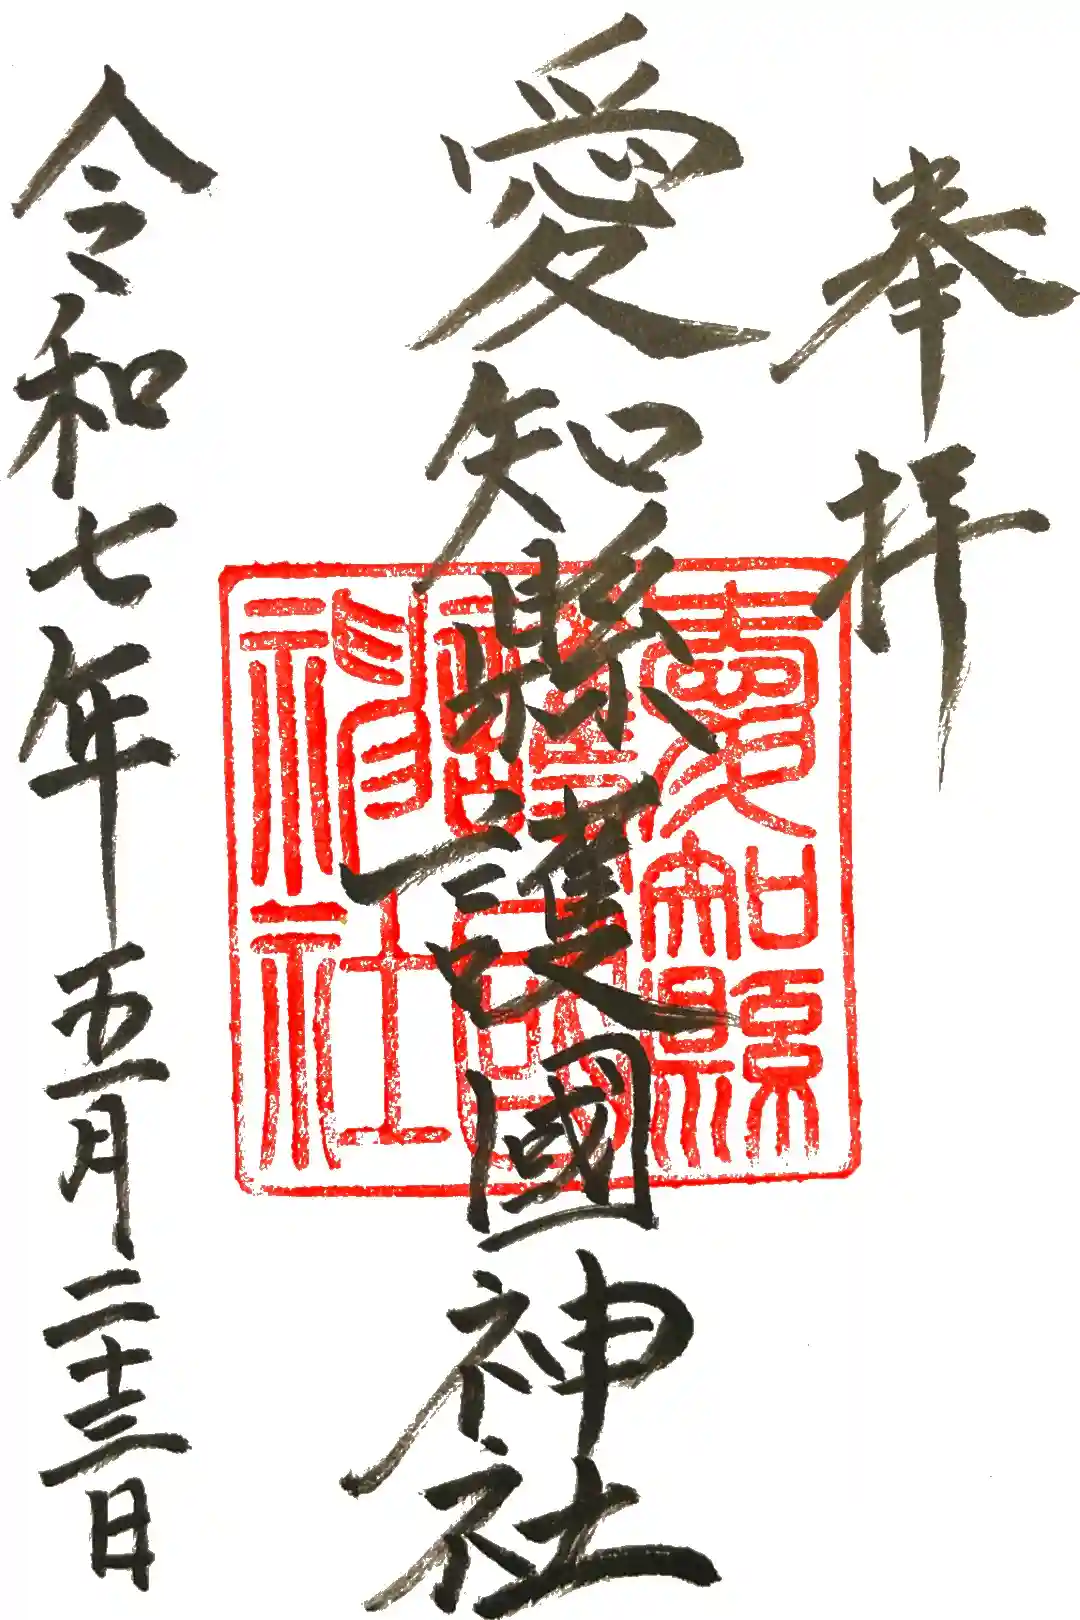 奉拝
愛知縣護國神社
愛知縣護國神社
令和七年五月二十三日